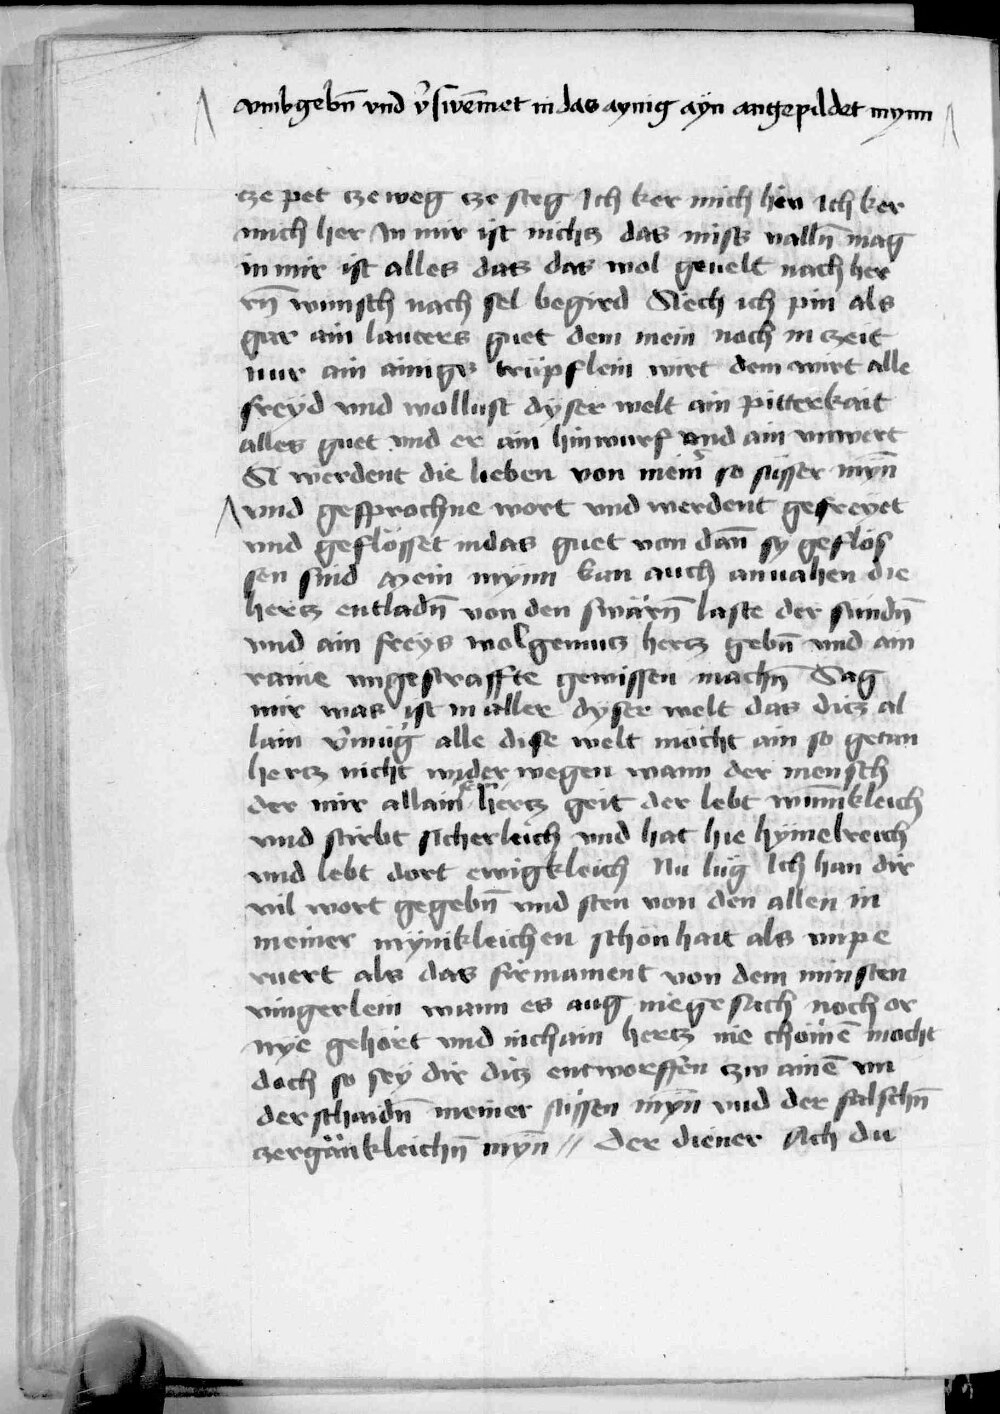 umbgebn̄ vnd v̄swem̄et in das aynig ayn angepildet mynn
cze pet cze weg cze steg Ich ker mich hin ich ker
mich her In mir ist nichs das miss vallñ mag
in mir ist alles das das wol geuelt nach her
czñ wunsch nach sel begird Siech ich pin als
gar ain lauters guet dem mein noch in czeit
nur ain ainigs trüpflein wirt dem wirt alle
freyd vnd wollust dyser welt ain pitterkait
alles guet vnd er ain hinwurf vnd ain vnwert
Si werdent die lieben von meinr so süsser myn̄
vnd gesprochne wort vnd werdent gefreyet
vnd geflösset in das guet von dan̄ sy geflos
sen sind Mein mynn kan auch anuahen die
hertz entladn̄ von den swärn̄ laste der sundn̄
vnd ain freys wolgemutz hertz gebn̄ vnd ain
raine vngestraffte gewissen machn̄ Sag
mir was ist in aller dyser welt das ditz al
lain v̄müg alle dise welt möcht ain so getan
hertz nicht widerwegen wann der mensch
der mir allain sein hertz geit der lebt wun̄ikleich
vnd stirbt sicherleich vnd hat hie hymelreich
vnd lebt dort ewigkleich Nu lüg Ich han dir
vil wort gegebn̄ vnd sten von den allen in
meiner mynikleichen schonhait als vnpe
ruert als das firmament von dem minsten
vingerlein wann es aug nie gesach noch or
nye gehört vnd nichain hertz nie chömē mocht
doch so sey dir ditz entworffen czw ainē vn
derschaidn̄ meiner süssen myn̄ vnd der falschn̄
czergänkleichn̄ myn̄ // Der diener Ach du